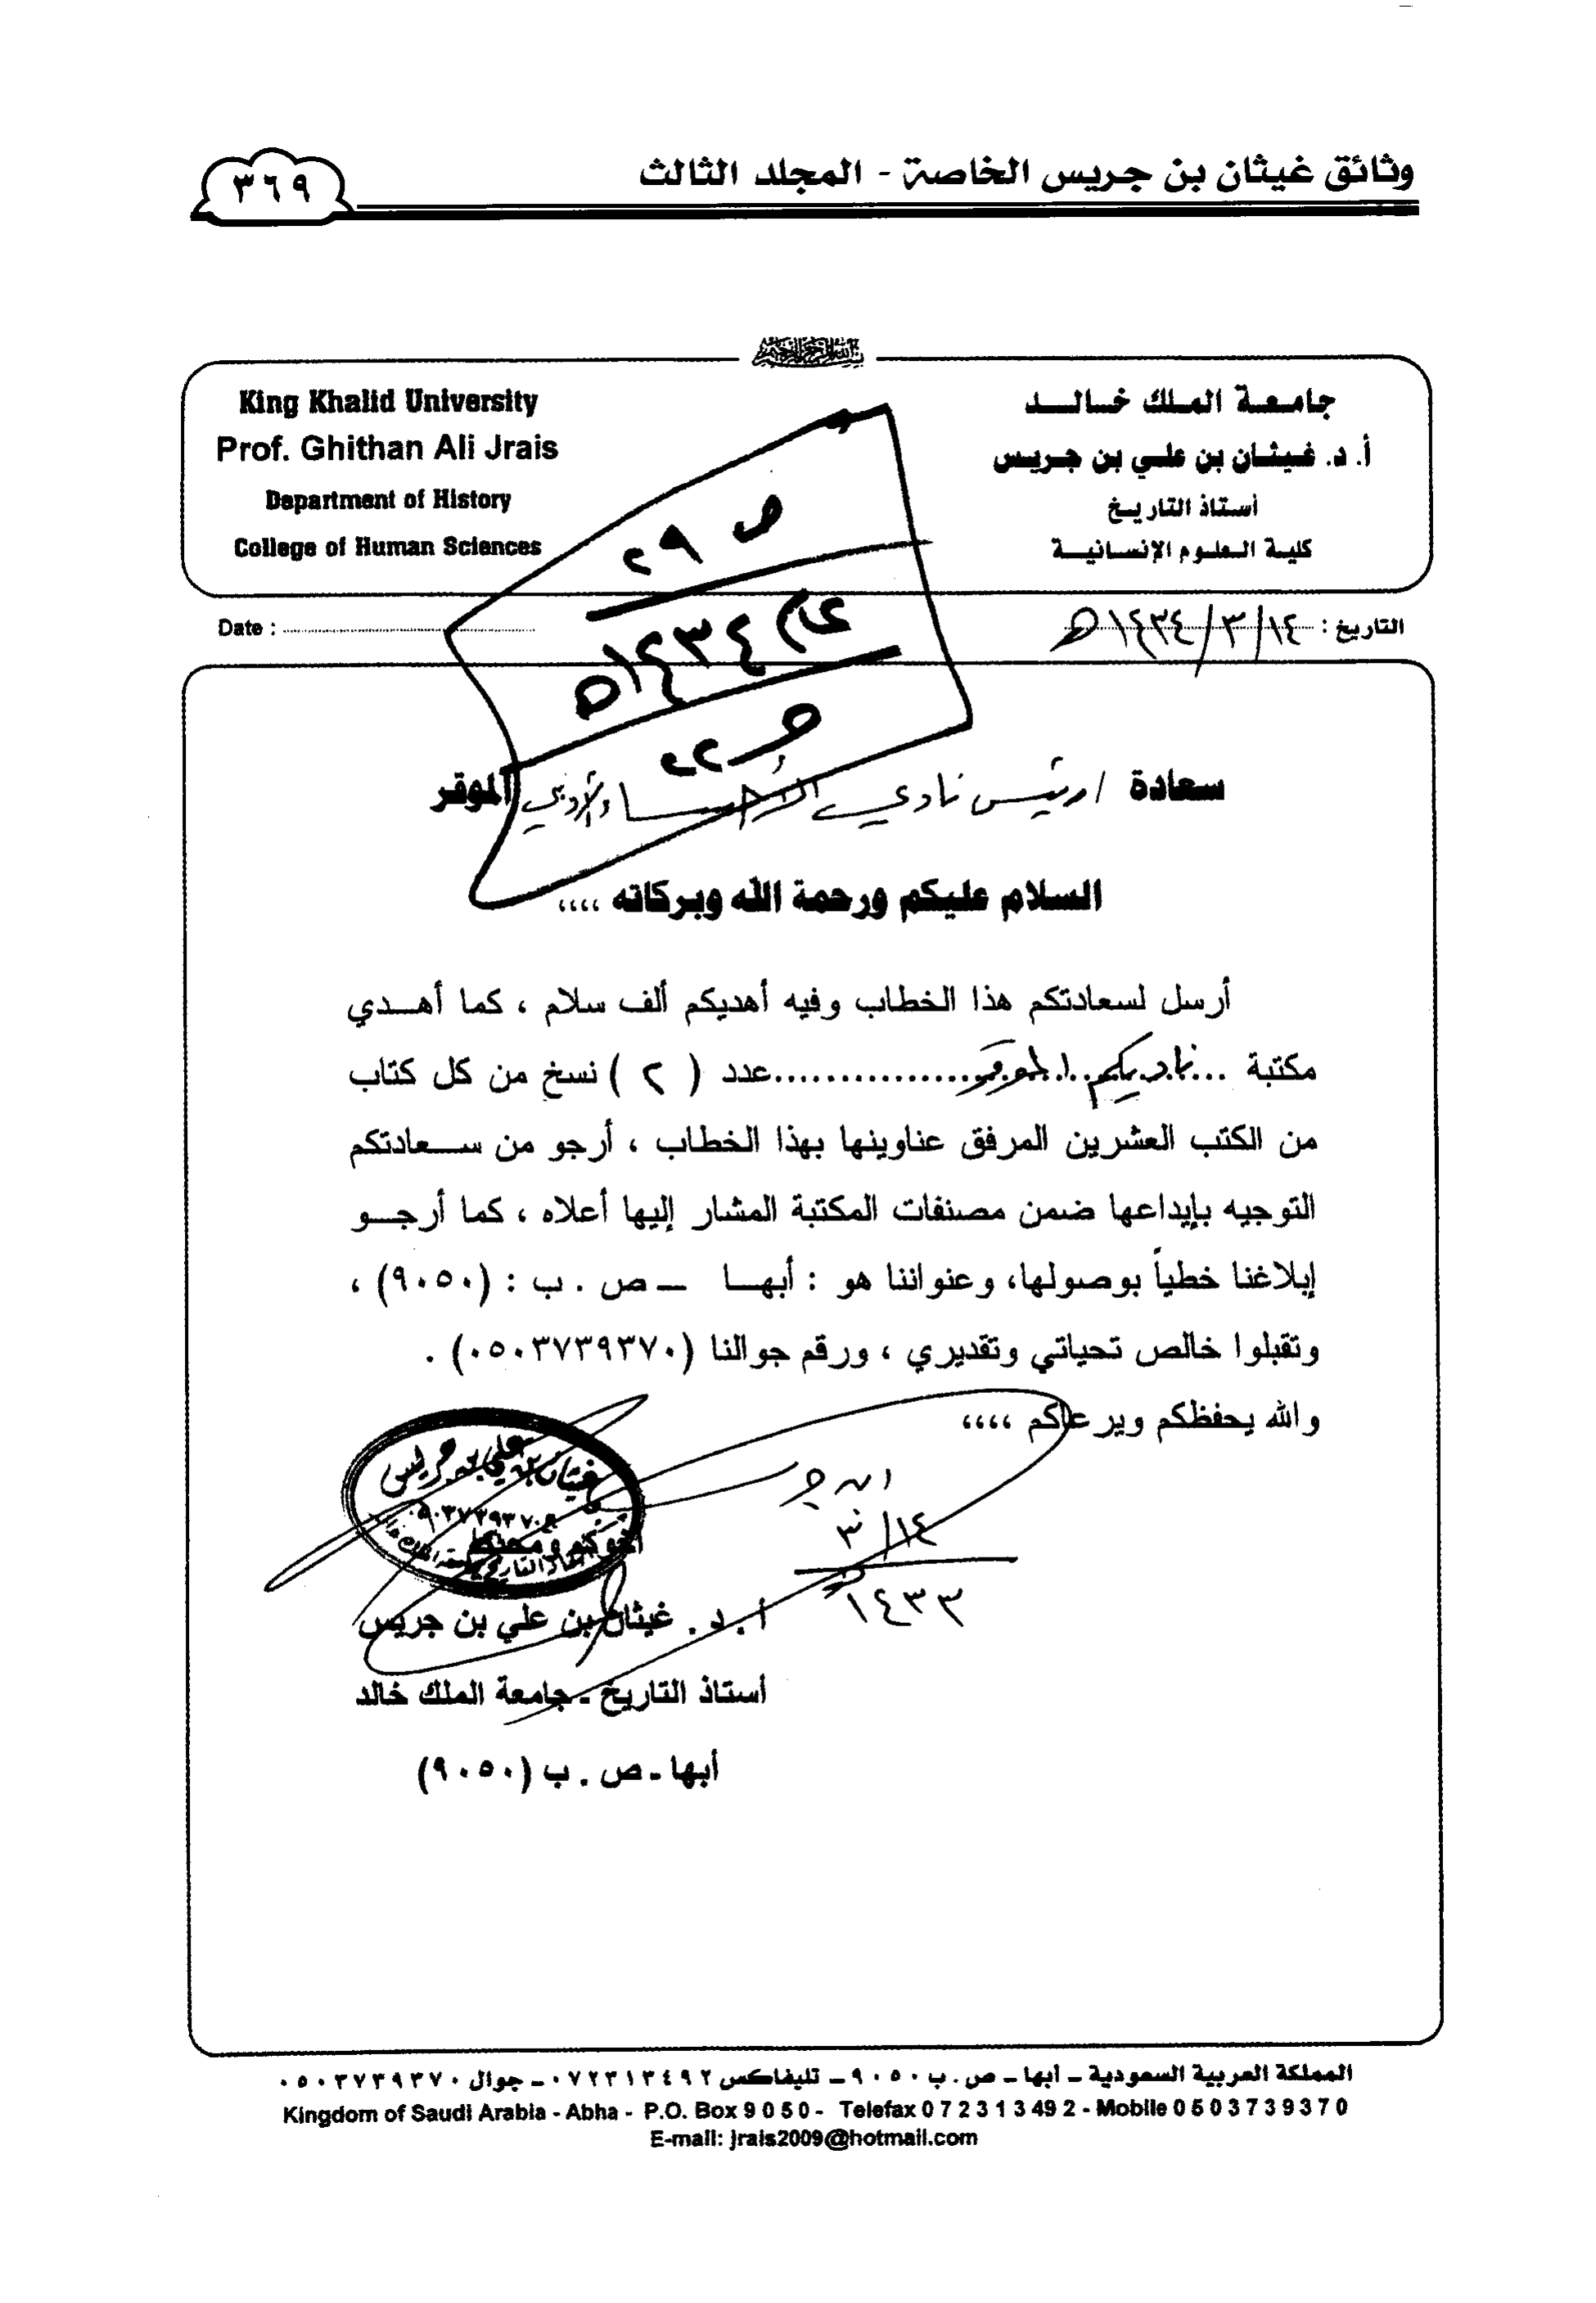 وثائق غيثان بن جريس الخاصة - المجلد الثالث
٣٦٩
بسم الله الرحمن الرحيم
جامعة الملك خالد
أ. د. غيثان بن علي بن جريس
أستاذ التاريخ
كلية العلوم الإنسانية
King Khalid University
Prof. Ghithan Ali Jrais
Department of History
College of Human Sciences
التاريخ : ١٤/٣/١٤٣٤هـ
Date :
ص ٢٩
عام ١٤٣٤هـ
جـ ٢٢
سعادة / رئيس نادي الأحساء الأدبي الموقر
السلام عليكم ورحمة الله وبركاته ،،،،
أرسل لسعادتكم هذا الخطاب وفيه أهديكم ألف سلام ، كما أهدي
مكتبة ... ناديكم الموقر ................ عدد ( ٢ ) نسخ من كل كتاب
من الكتب العشرين المرفق عناوينها بهذا الخطاب ، أرجو من سعادتكم
التوجيه بإيداعها ضمن مصنفات المكتبة المشار إليها أعلاه ، كما أرجو
إبلاغنا خطياً بوصولها، وعنواننا هو : أبها – ص . ب : (٩٠٥٠) ،
وتقبلوا خالص تحياتي وتقديري ، ورقم جوالنا (٠٥٠٣٧٣٩٣٧٠) .
والله يحفظكم ويرعاكم ،،،،
غيثان بن علي بن جريس
أخوكم ومحبكم
١٤/٣
١٤٣٣
أ . د . غيثان بن علي بن جريس
أستاذ التاريخ - جامعة الملك خالد
أبها - ص . ب (٩٠٥٠)
المملكة العربية السعودية – أبها – ص . ب ٩٠٥٠ – تليفاكس ٠٧٢٣١٣٤٩٢ – جوال ٠٥٠٣٧٣٩٣٧٠
Kingdom of Saudi Arabia - Abha - P.O. Box 9 0 5 0 - Telefax 0 7 2 3 1 3 49 2 - Mobile 0 5 0 3 7 3 9 3 7 0
E-mail: jrais2009@hotmail.com